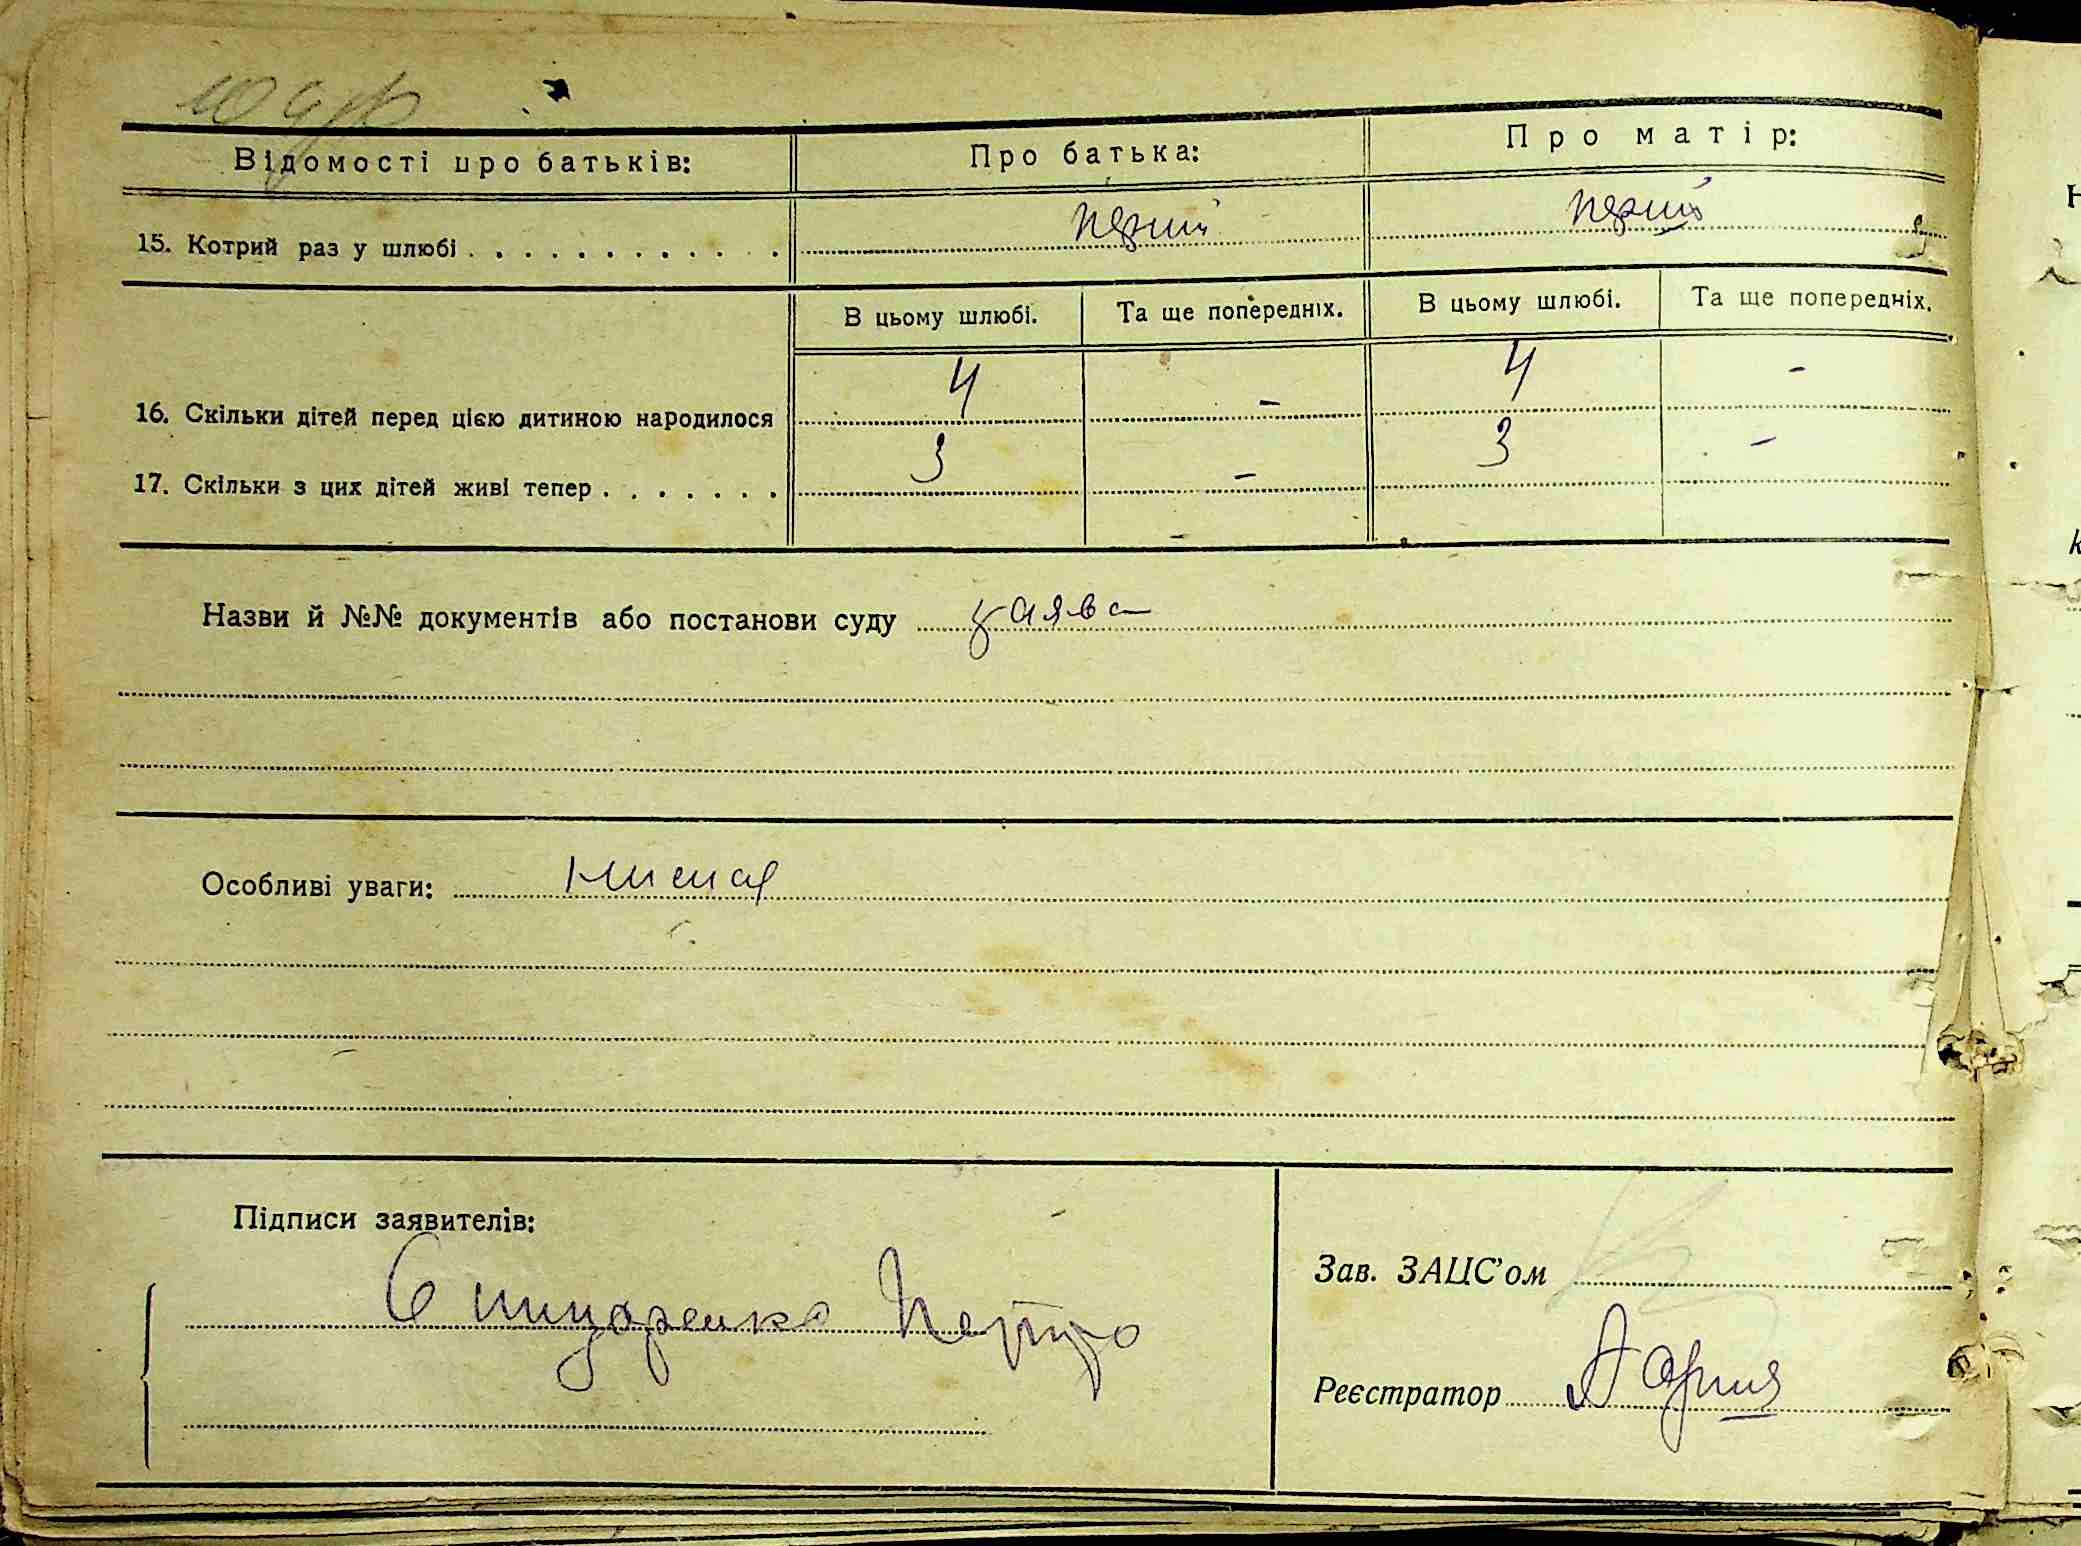 Відомості про батьків: Про батька: Про матір:
15. Котрий раз у шлюбі . . . . . . . . . . . . перший перший
В цьому шлюбі. Та ще попередніх. В цьому шлюбі. Та ще попередніх.
16. Скільки дітей перед цією дитиною народилося 4 - 4 -
17. Скільки з цих дітей живі тепер . . . . . . . 3 - 3 -
Назви й №№ документів або постанови суду заява
Особливі уваги: немає
Підписи заявителів:
Петро
Зав. ЗАЦС'ом
Реєстратор